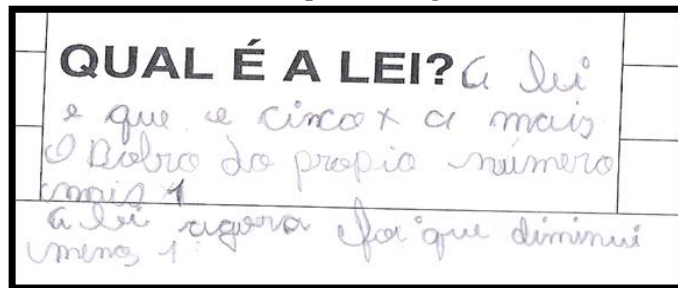 QUAL É A LEI? A lei
e que e cinco x a mais
O Dobro do propio número
mais 1
a lei agora foi que diminui
menos 1